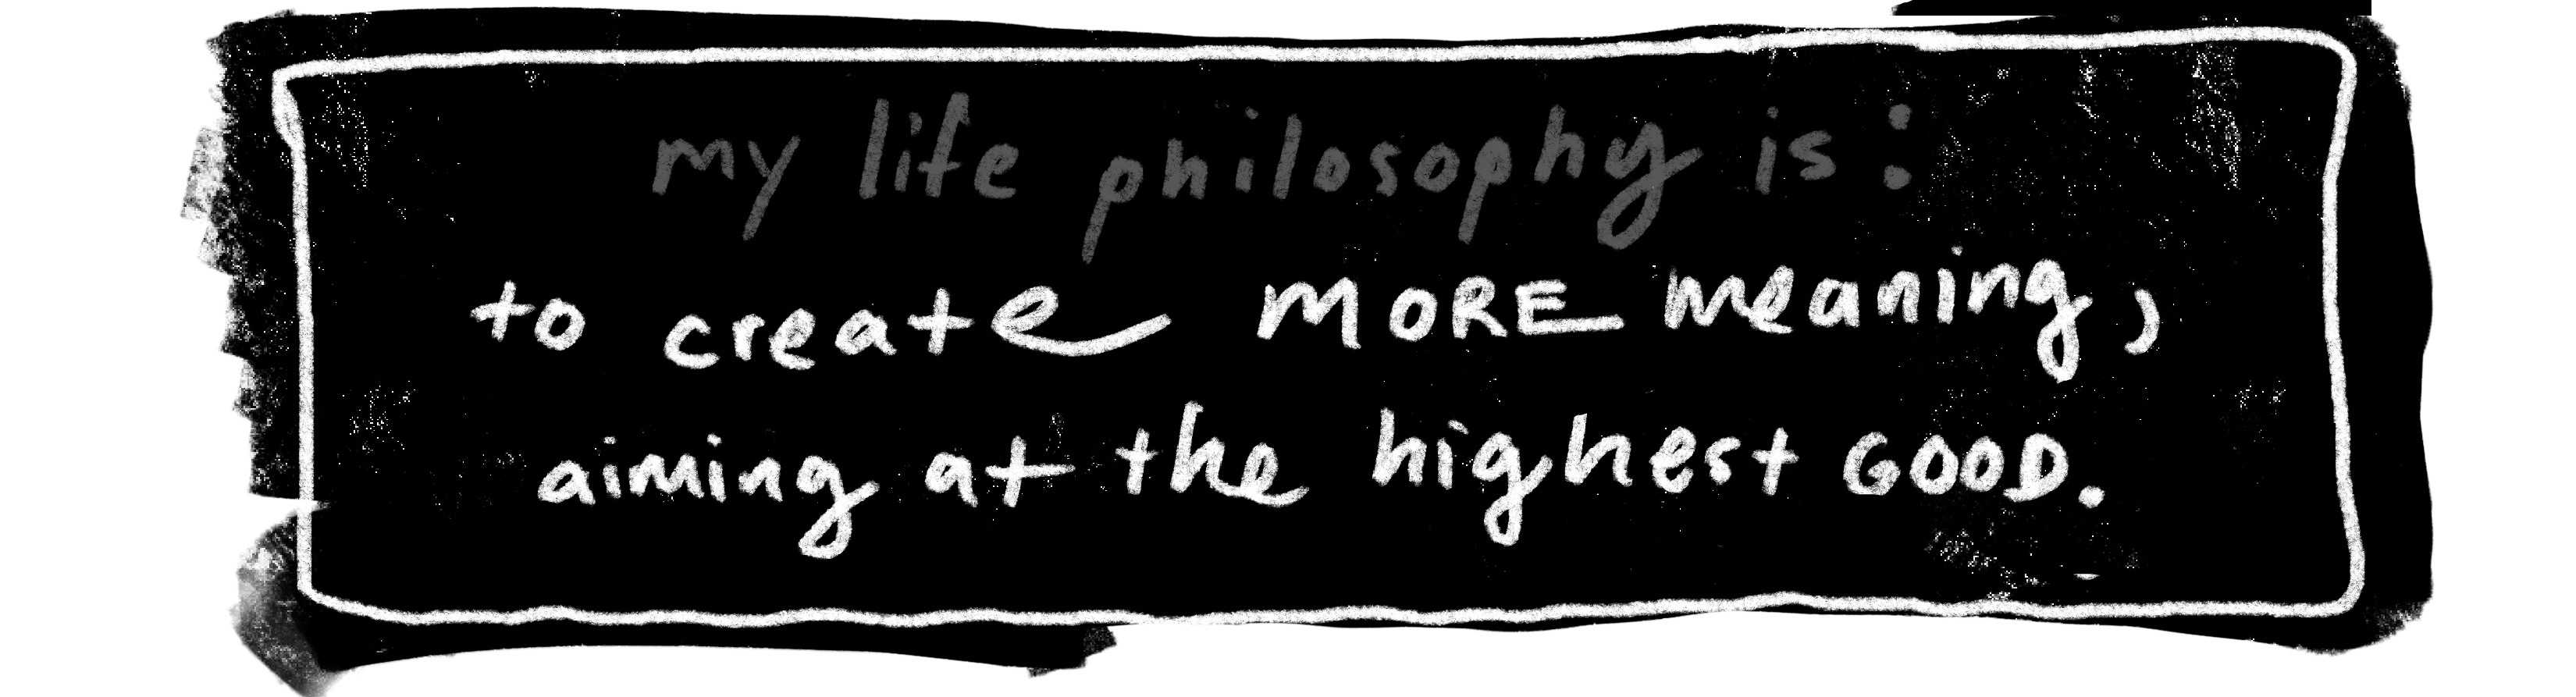 my life philosophy is:
to create MORE meaning,
aiming at the highest GOOD.